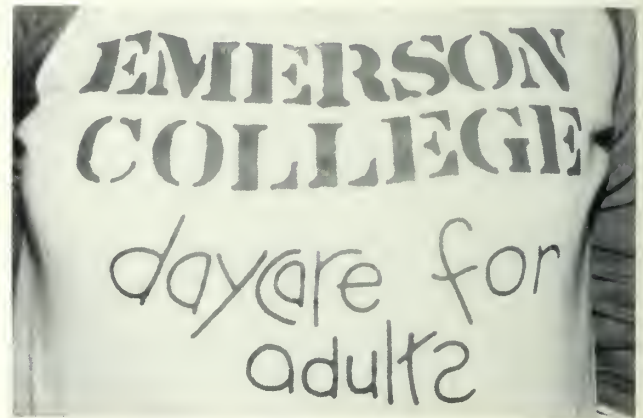 EMERSON
COLLEGE
daycare for
adults